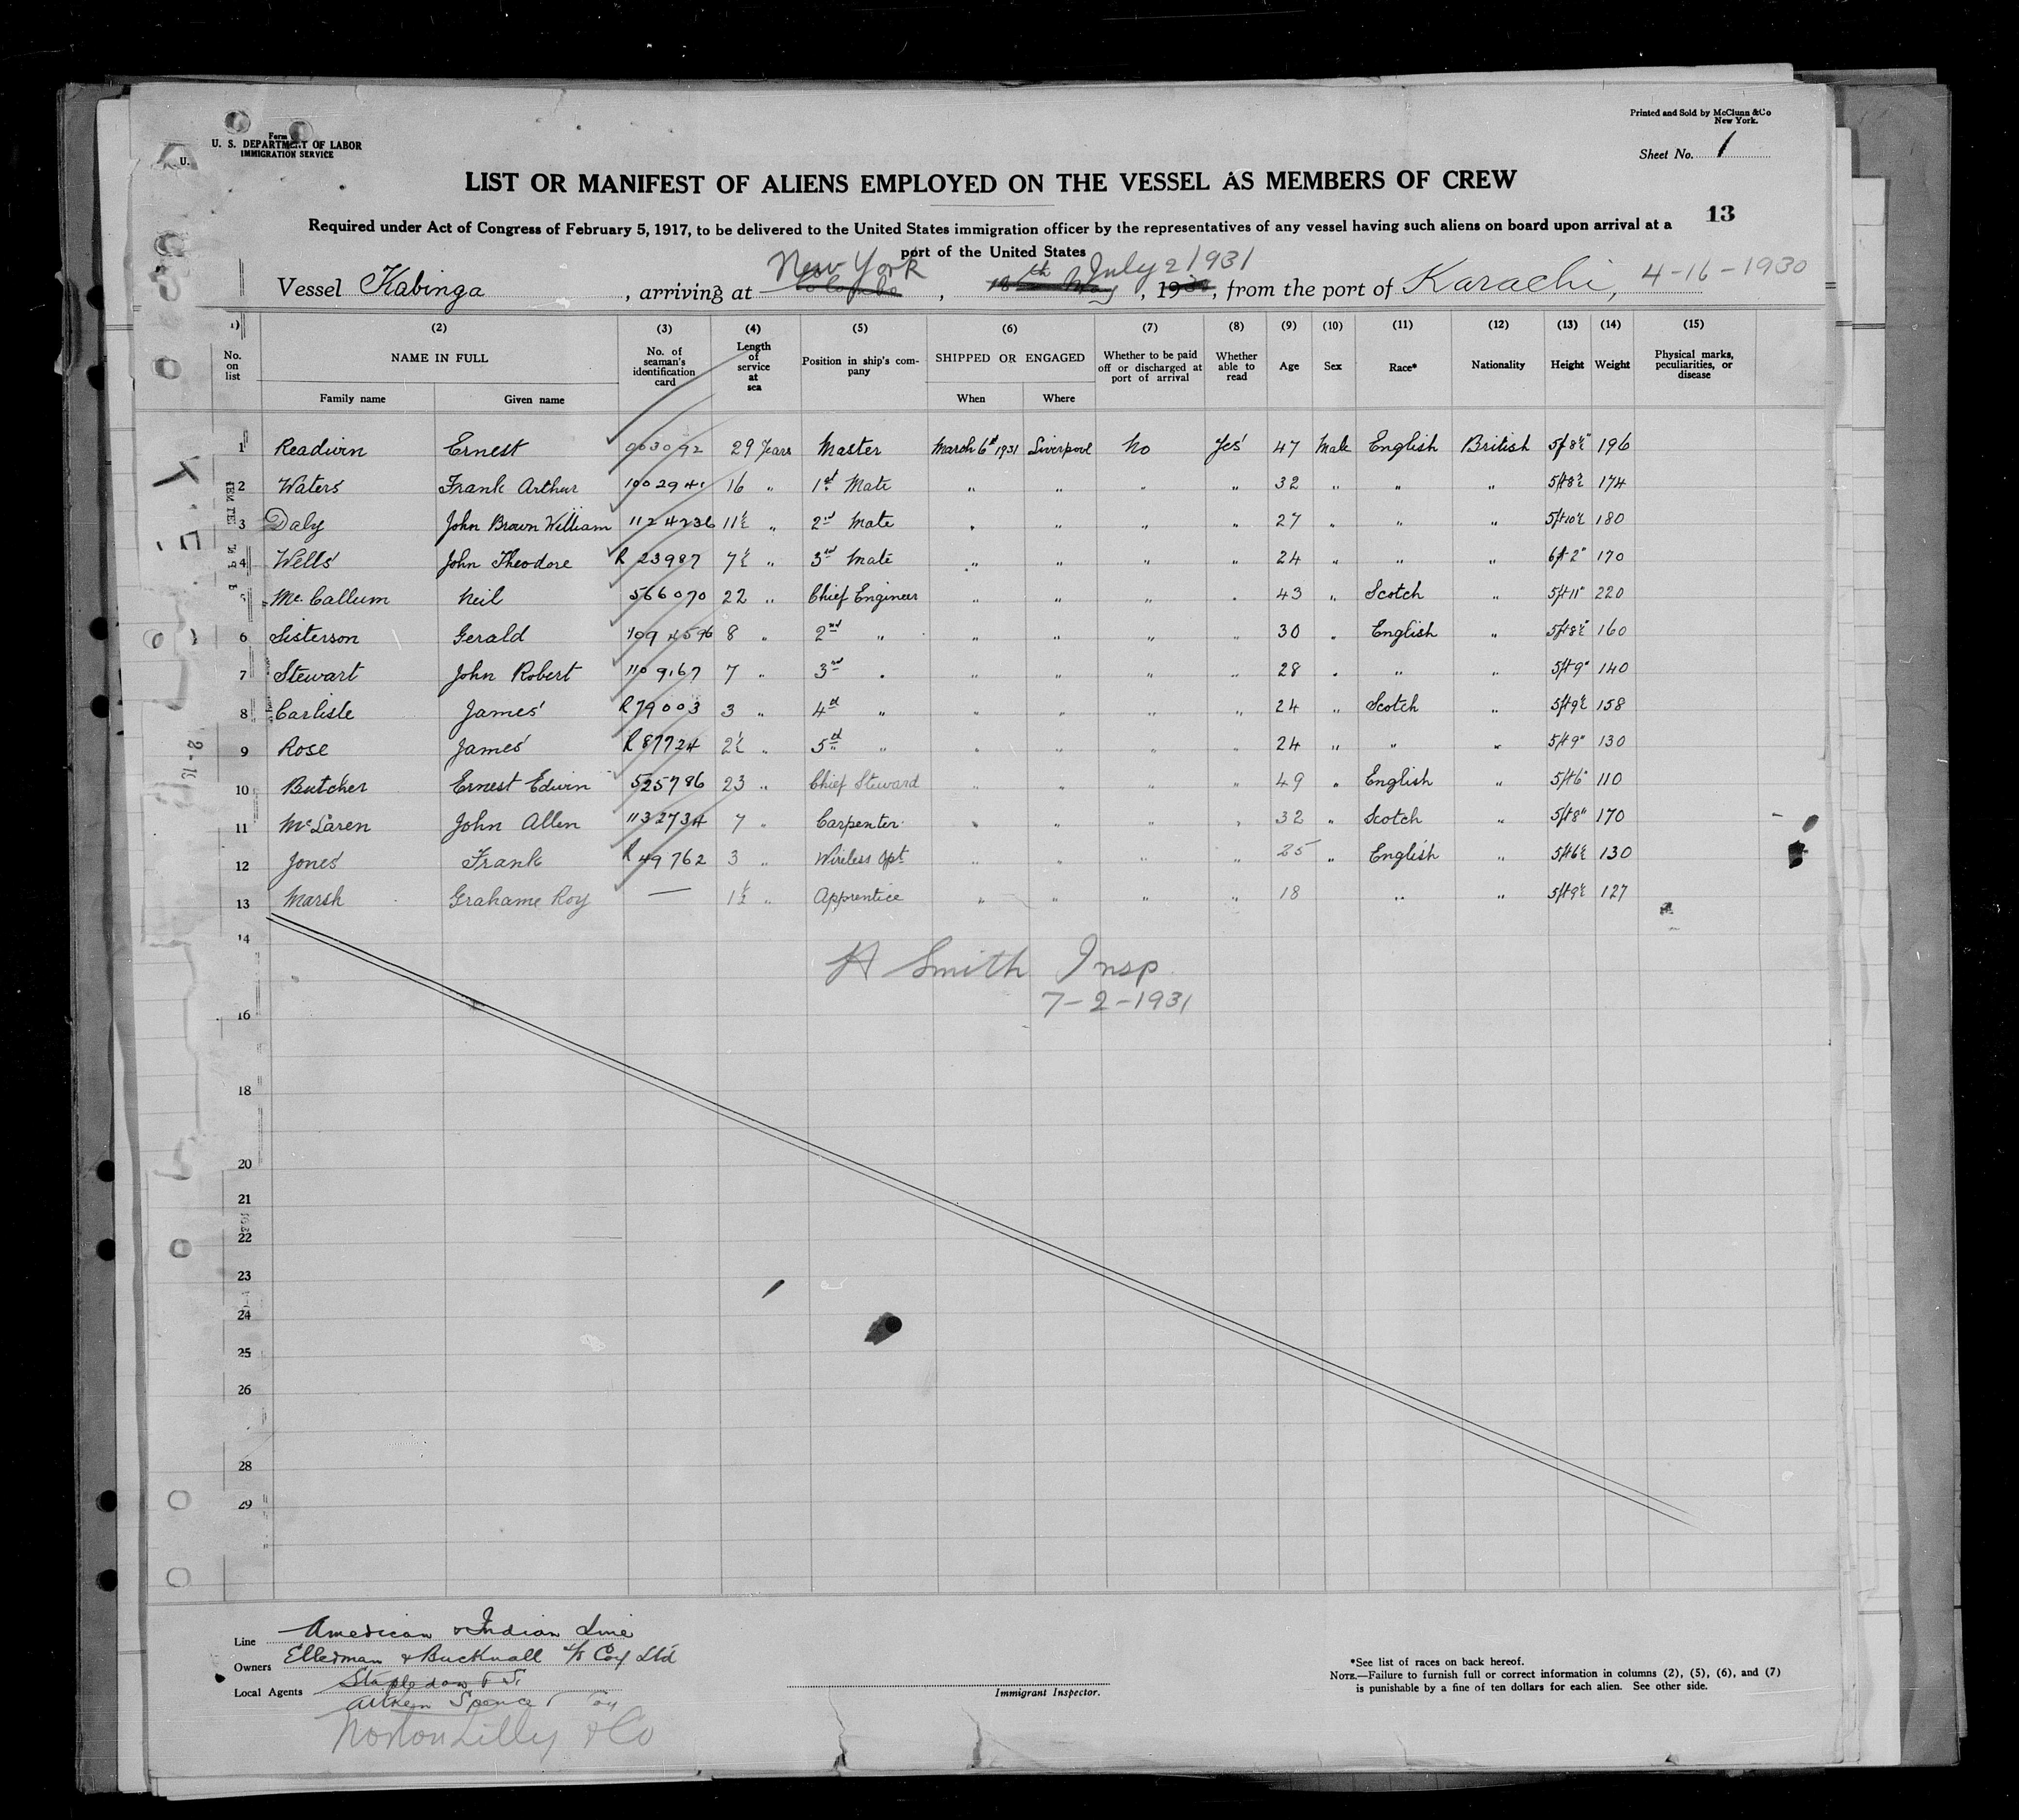 Form
U. S. DEPARTMENT OF LABOR
IMMIGRATION SERVICE
U.
Printed and Sold by McClunn & Co
New York.
Sheet No. 1
LIST OR MANIFEST OF ALIENS EMPLOYED ON THE VESSEL AS MEMBERS OF CREW
13
Required under Act of Congress of February 5, 1917, to be delivered to the United States immigration officer by the representatives of any vessel having such aliens on board upon arrival at a
port of the United States
New York July 2 1931
Vessel Kabinga, arriving at Colombo, 18th May, 1930, from the port of Karachi, 4-16-1930
1) (2) (3) (4) (5) (6) (7) (8) (9) (10) (11) (12) (13) (14) (15)
No. on list NAME IN FULL No. of seaman's identification card Length of service at sea Position in ship's company SHIPPED OR ENGAGED Whether to be paid off or discharged at port of arrival Whether able to read Age Sex Race* Nationality Height Weight Physical marks, peculiarities, or disease
Family name Given name When Where
1 Readwin Ernest 003092 29 Years Master March 6th 1931 Liverpool No Yes 47 Male English British 5f 8½" 196
2 Waters Frank Arthur 1002941 16 " 1st Mate " " " " 32 " " " 5ft 8½ 174
3 Daly John Brown William 1124236 11½ " 2nd Mate " " " " 27 " " " 5ft 10½ 180
4 Wells John Theodore R 23987 7½ " 3rd Mate " " " " 24 " " " 6ft 2" 170
5 Mc. Callum Neil 566070 22 " Chief Engineer " " " " 43 " Scotch " 5ft 11" 220
6 Sisterson Gerald 1094596 8 " 2nd " " " " " 30 " English " 5ft 8½ 160
7 Stewart John Robert 1109167 7 " 3rd " " " " " 28 " " " 5ft 9" 140
8 Carlisle James R79003 3 " 4th " " " " " 24 " Scotch " 5ft 9½ 158
9 Rose James R87724 2½ " 5th " " " " " 24 " " " 5ft 9" 130
10 Butcher Ernest Edwin 525786 23 " Chief Steward " " " " 49 " English " 5ft 6" 110
11 McLaren John Allen 1132734 7 " Carpenter " " " " 32 " Scotch " 5ft 8" 170
12 Jones Frank R 49762 3 " Wireless Opt " " " " 25 " English " 5ft 6½ 130
13 Marsh Grahame Roy — 1½ " Apprentice " " " " 18 " " 5ft 9½ 127
14
A Smith Insp.
7-2-1931
16
18
20
21
22
23
24
25
26
28
29
Line American & Indian Line
Owners Ellerman & Bucknall S/S Coy Ltd
Local Agents
Aitken Spence & Coy
Norton Lilly & Co
Immigrant Inspector.
*See list of races on back hereof.
NOTE.—Failure to furnish full or correct information in columns (2), (5), (6), and (7)
is punishable by a fine of ten dollars for each alien. See other side.